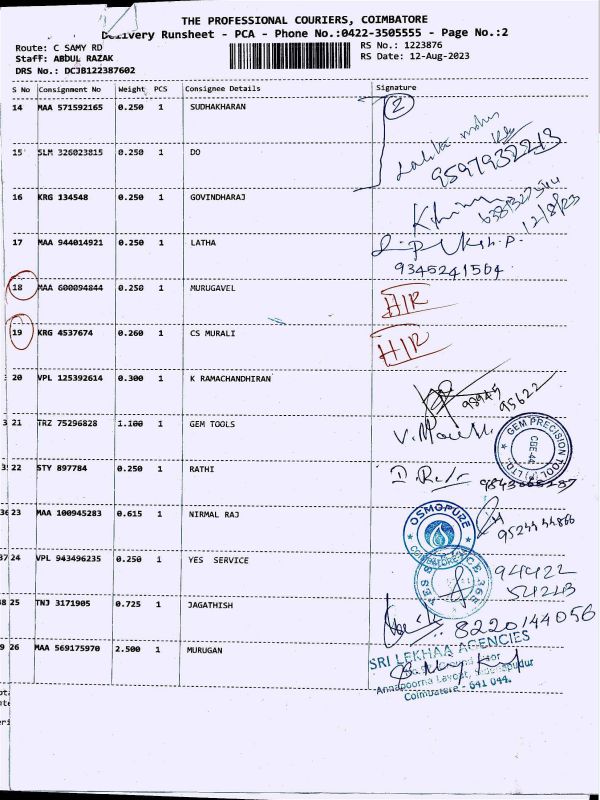 THE PROFESSIONAL COURIERS, COIMBATORE
Delivery Runsheet - PCA - Phone No.:0422-3505555 - Page No.:2
Route: C SAMY RD RS No.: 1223876
Staff: ABDUL RAZAK RS Date: 12-Aug-2023
DRS No.: DCJB122387602
S No Consignment No Weight PCS Consignee Details Signature
14 MAA 571592165 0.250 1 SUDHAKHARAN 2
15 SLM 326023815 0.250 1 DO
9597932213
16 KRG 134548 0.250 1 GOVINDHARAJ
12/8/23
17 MAA 944014921 0.250 1 LATHA
9345241564
18 MAA 600094844 0.250 1 MURUGAVEL HIR
19 KRG 4537674 0.260 1 CS MURALI HIR
20 VPL 125392614 0.300 1 K RAMACHANDHIRAN
98945 95622
21 TRZ 75296828 1.100 1 GEM TOOLS
GEM PRECISION TOOL (P) LTD.
CBE-44
22 STY 897784 0.250 1 RATHI
23 MAA 100945283 0.615 1 NIRMAL RAJ
OSMOPURE
COIMBATORE
95244 44866
24 VPL 943496235 0.250 1 YES SERVICE 94422
54243
25 TNJ 3171905 0.725 1 JAGATHISH
8220144056
26 MAA 569175970 2.500 1 MURUGAN SRI LEKHAA AGENCIES
Annapoorna Layout,
Coimbatore - 641 044.